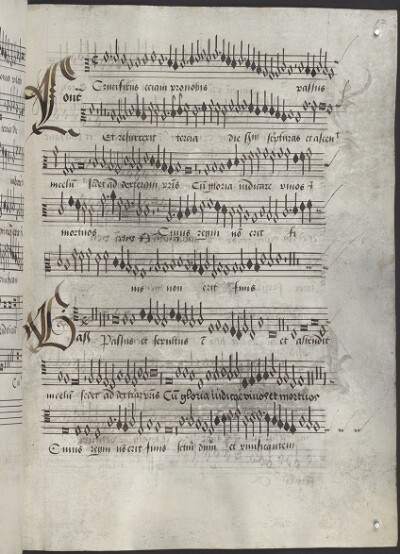 Crucifixus eciam pro nobis passus
Cont
Et resurrexit tercia die scripturas et ascen
in celum sedet ad dexteram pris Cu gloria iudicare vivos
mortuos Cuius regni no erit fi
nis non erit finis
Bass Passus et sepultus et ascendit
in celum sedet ad dexteram pris Cu gloria iudicare vivos et mortuos
Cuius regni no erit finis et vivificantem